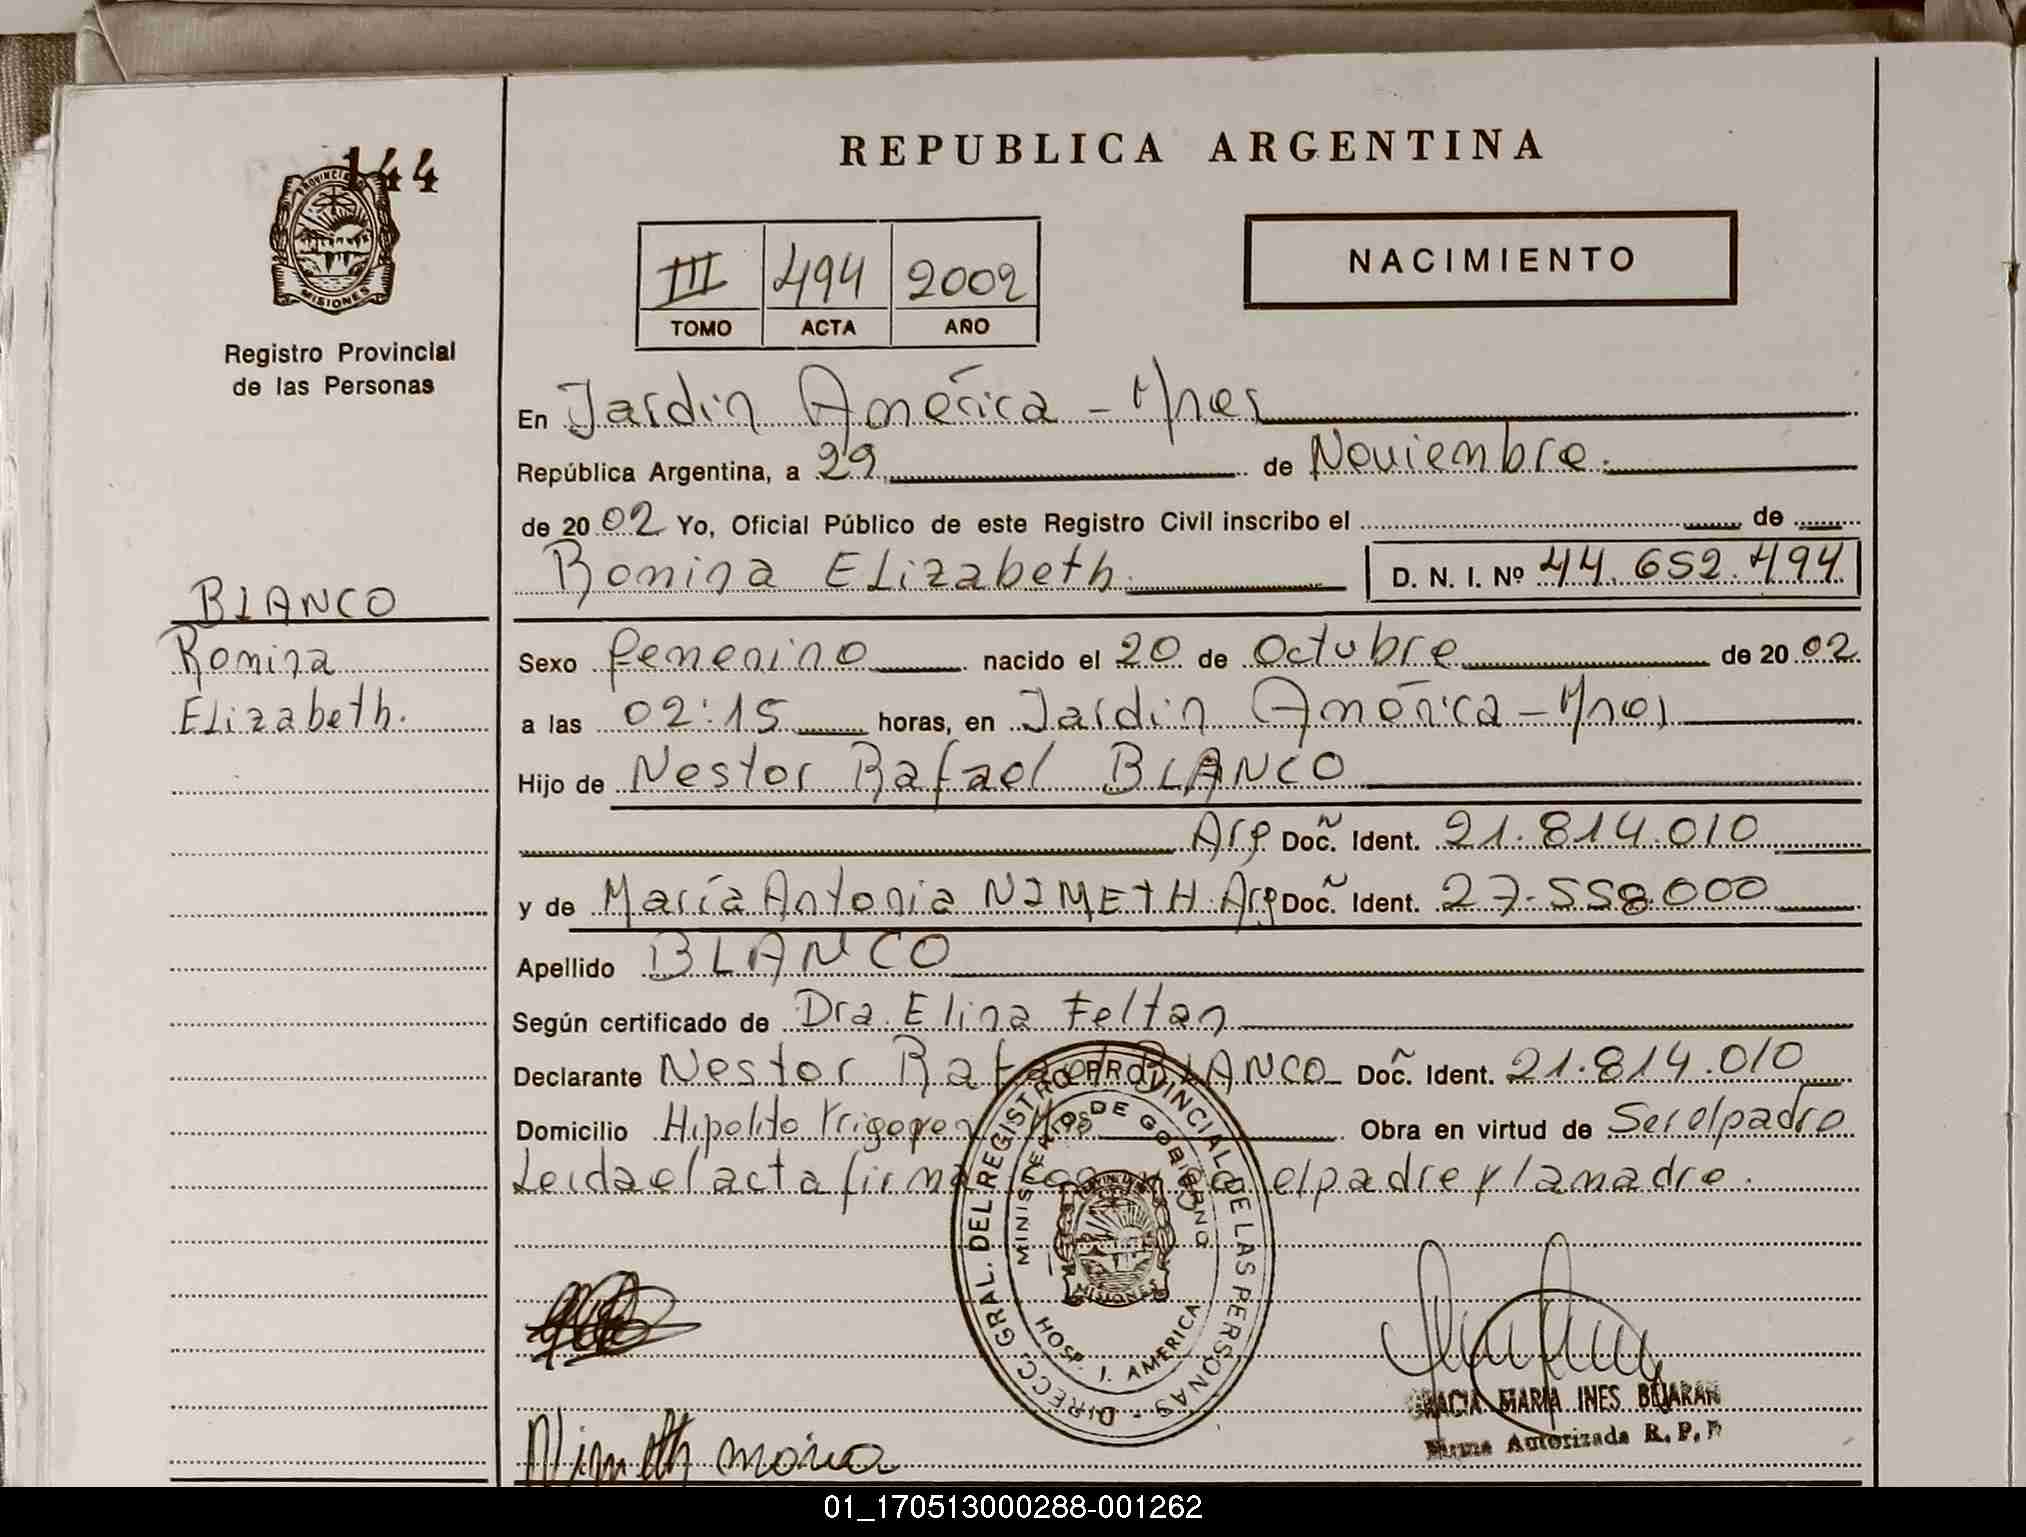 144
PROVINCIA DE
MISIONES
Registro Provincial
de las Personas
REPUBLICA ARGENTINA
III 494 2002
TOMO ACTA AÑO
NACIMIENTO
En Jardin América - Mnes
República Argentina, a 29 de Noviembre.
de 20 02 Yo, Oficial Público de este Registro Civil inscribo el de
Romina ELizabeth. D. N. I. Nº 44.652.494
BLANCO
Romina
ELizabeth.
Sexo femenino nacido el 20 de Octubre de 20 02
a las 02:15 horas, en Jardin América - Mnes
Hijo de Nestor Rafael BLANCO
Arg Doc. Ident. 21.814.010
y de María Antonia NIMETH. Arg Doc. Ident. 27.558.000
Apellido BLANCO
Según certificado de Dra. Elina Feltan
Declarante Nestor Rafael BLANCO Doc. Ident. 21.814.010
Domicilio Hipolito Yrigoyen Mnes Obra en virtud de Ser el padre
Leida el acta firman el padre y la madre.
DIRECC. GRAL. DEL REGISTRO PROVINCIAL DE LAS PERSONAS
MINISTERIO DE GOBIERNO
MISIONES
HOSP. J. AMERICA
MARIA INES BEJARAN
Firma Autorizada R. P. P
Nimeth maria
01_170513000288-001262